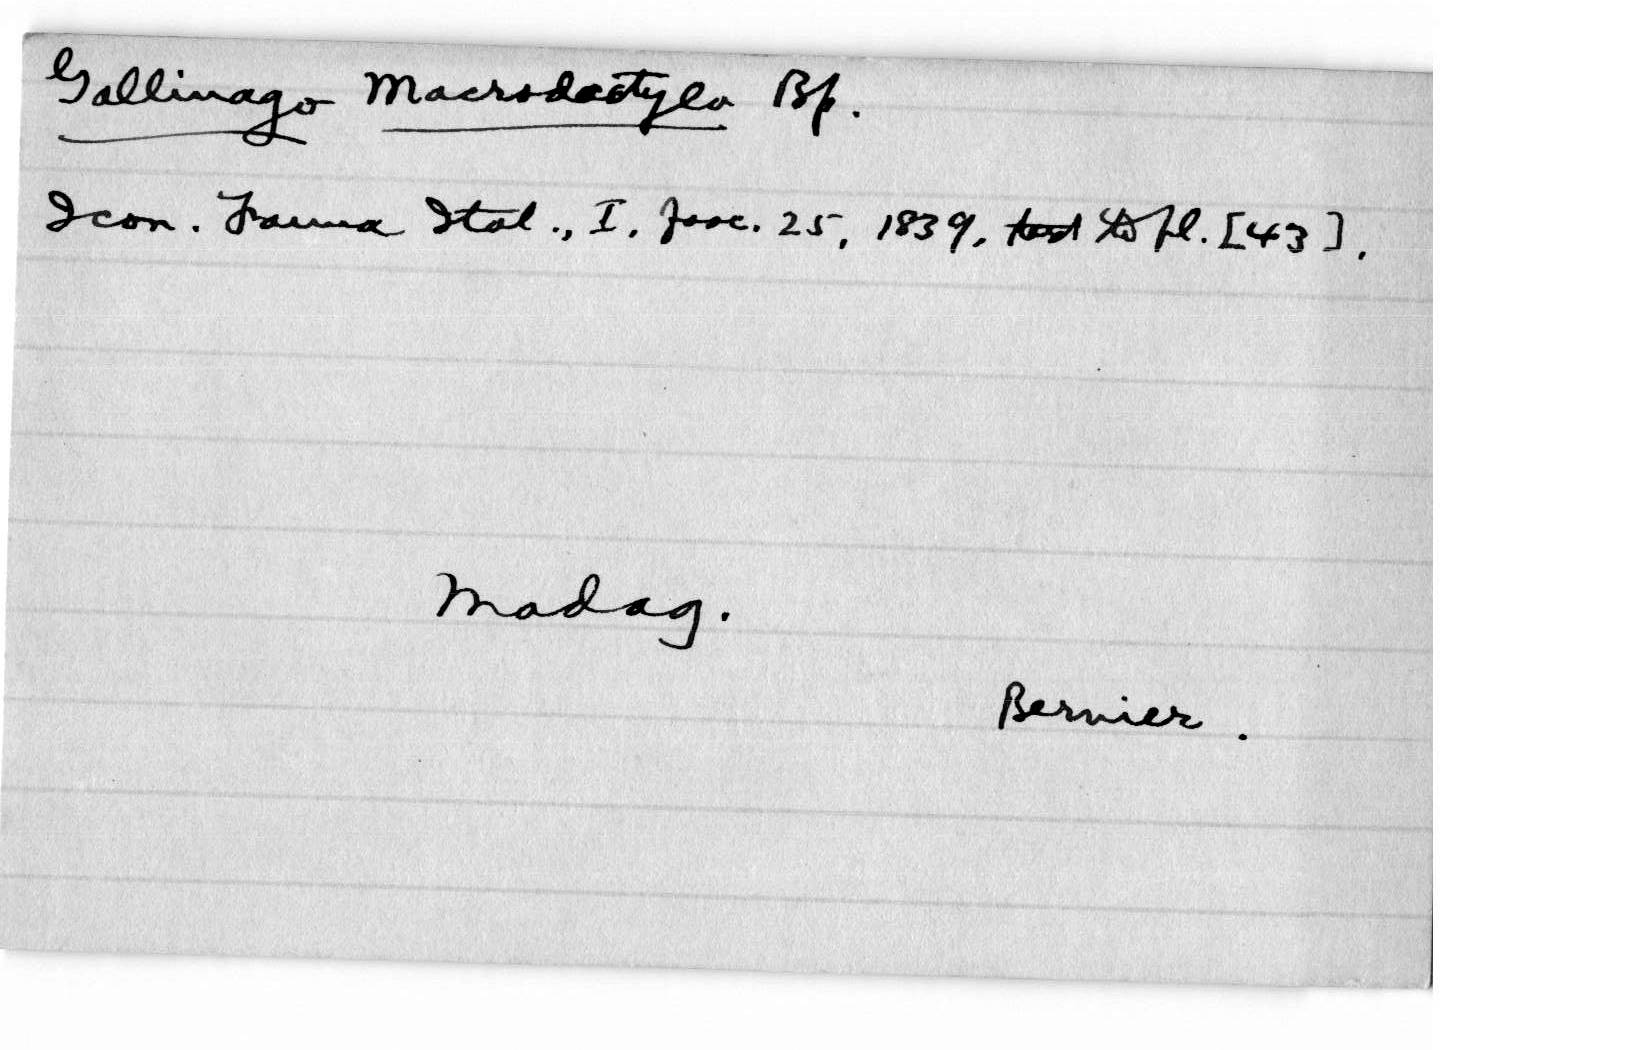 Gallinago Macrodactyla Bp.
Icon. Fauna Ital., I, fasc. 25, 1839, text to pl. [43].
Madag.
Bernier.